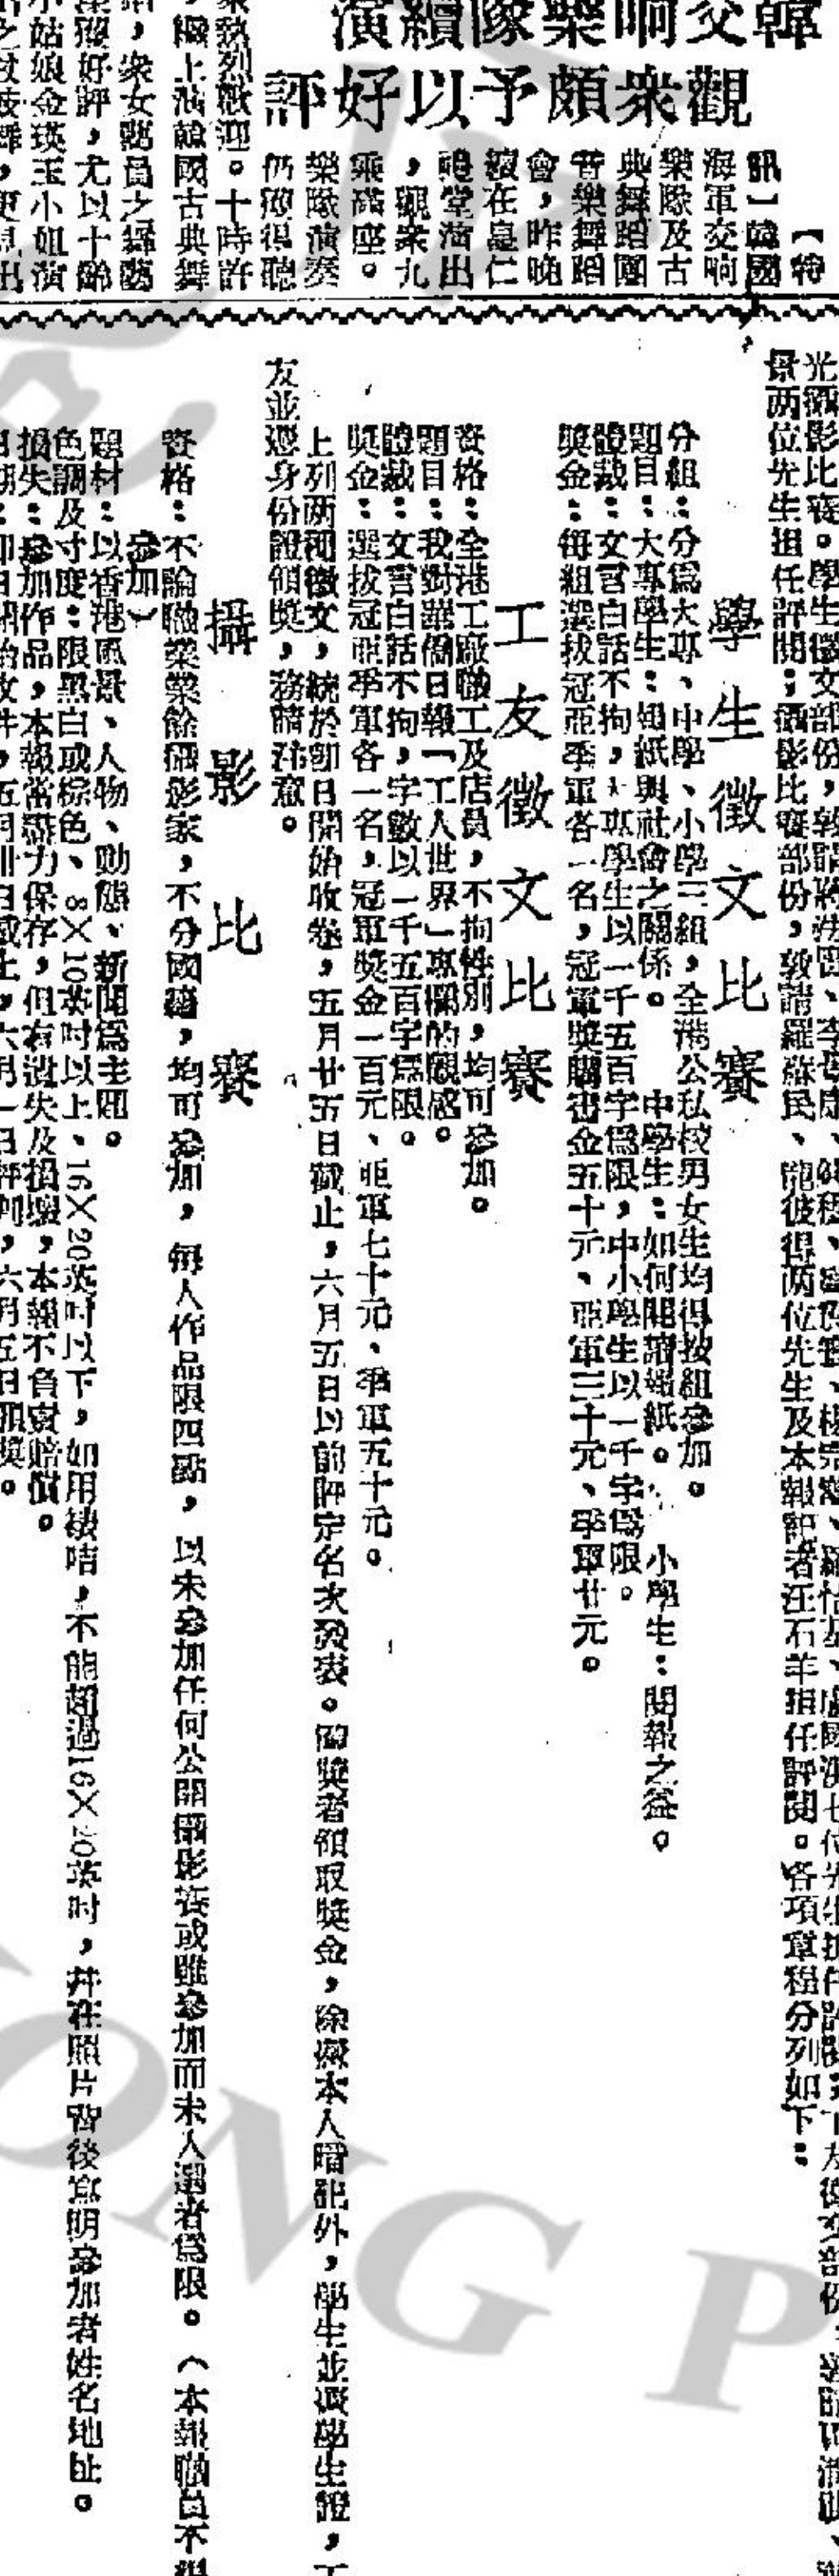 韓交响樂隊續演
觀衆頗予以好評
【特
訊】韓國
海軍交响
樂隊及古
典舞蹈團
音樂舞蹈
會，昨晚
續在
堂演出
，觀衆九
乘高座。
樂隊演奏
仍獲得聽
衆熱烈歡迎。十時許
，繼上演韓國古典舞
蹈，衆女藝員之舞藝
深獲好評，尤以十餘
小姑娘金瑛玉小姐演
景两位先生担任評閱；攝影比賽部份，敦請羅蘇民、龍彼得两位先生及本報記者汪石羊担任評閱。各項章程分列如下：
學生徵文比賽
分組：分爲大專、中學、小學三組，全港公私校男女生均得按組參加。
題目：大專學生：報紙與社會之關係。　中學生：如何閱讀報紙。　小學生：閱報之益。
體裁：文言白話不拘，大專學生以一千五百字爲限，中小學生以一千字爲限。
獎金：每組選拔冠亞季軍各一名，冠軍獎購書金五十元、亞軍三十元、季軍廿元。
工友徵文比賽
資格：全港工廠職工及店員，不拘性別，均可參加。
題目：我對華僑日報「工人世界」專欄的觀感。
體裁：文言白話不拘，字數以一千五百字爲限。
獎金：選拔冠亞季軍各一名，冠軍獎金一百元、亞軍七十元、季軍五十元。
上列两項徵文，統於即日開始收卷，五月廿五日截止，六月五日以前評定名次發表。獲獎者領取獎金，除憑本人暗記外，學生並憑學生證，工
友並憑身份證領獎，務請注意。
攝影比賽
資格：不論職業業餘攝影家，不分國籍，均可參加，每人作品限四點，以未參加任何公開攝影賽或雖參加而未入選者爲限。（本報職員不得
參加）
題材：以香港風景、人物、動態、新聞爲主題。
色調及寸度：限黑白或棕色、8×10英吋以上、16×20英吋以下，如用裱咭，不能超過16×20英吋，并在照片背後寫明參加者姓名地址。
損失：參加作品，本報當盡力保存，但有遺失及損壞，本報不負責賠償。
日期：即日開始收件，五月卅日截止，六月一日評判，六月五日頒獎。
ONG P